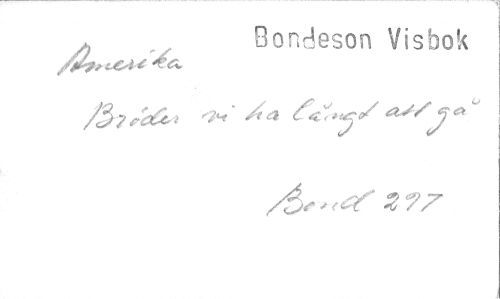 Bondeson Visbok
Amerika
Bröder vi ha långt att gå
Bond 297